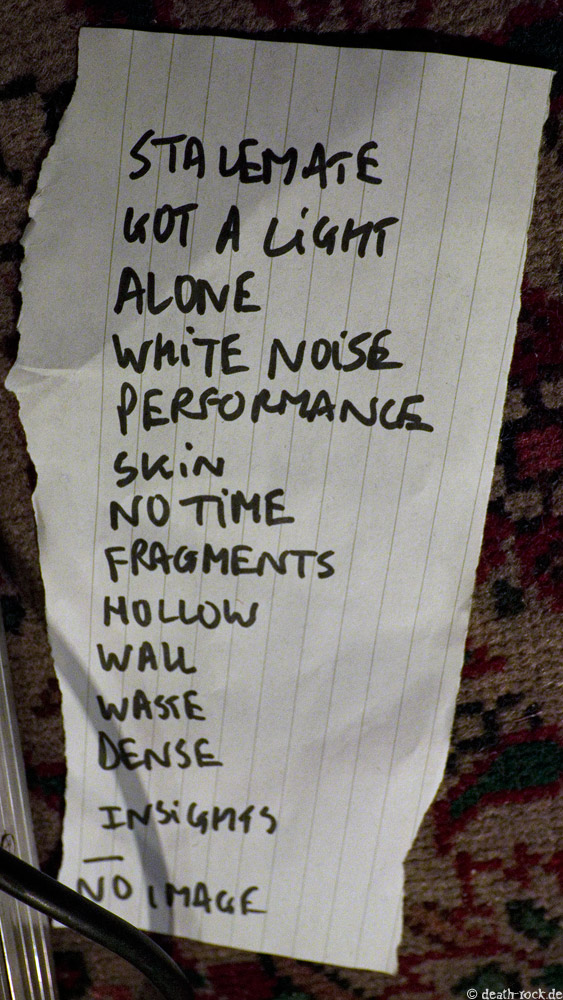 STALEMATE
GOT A LiGHT
ALONE
WHiTE NOiSE
PERFORMANCE
SKiN
NO TiME
FRAGMENTS
HOLLOW
WALL
WASTE
DENSE
INSiGHTS
—
NO IMAGE
© death-rock.de